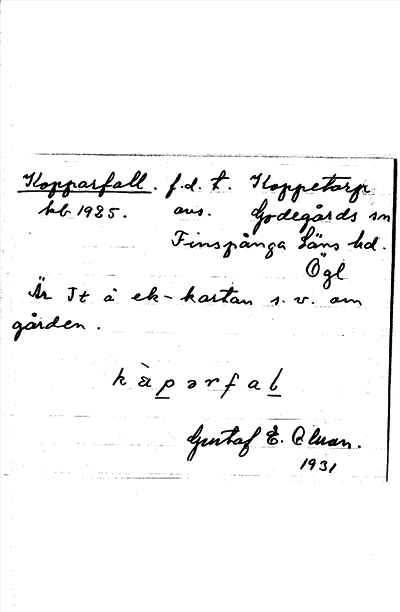 Kopparfall. f.d. t. Koppetorp
kb 1925. avs. Godegårds sn
Finspånga Läns hd.
Ögl
Är Jt å ek-kartan s. v. om
gården.
kàpərfal
Gustaf E.
1931